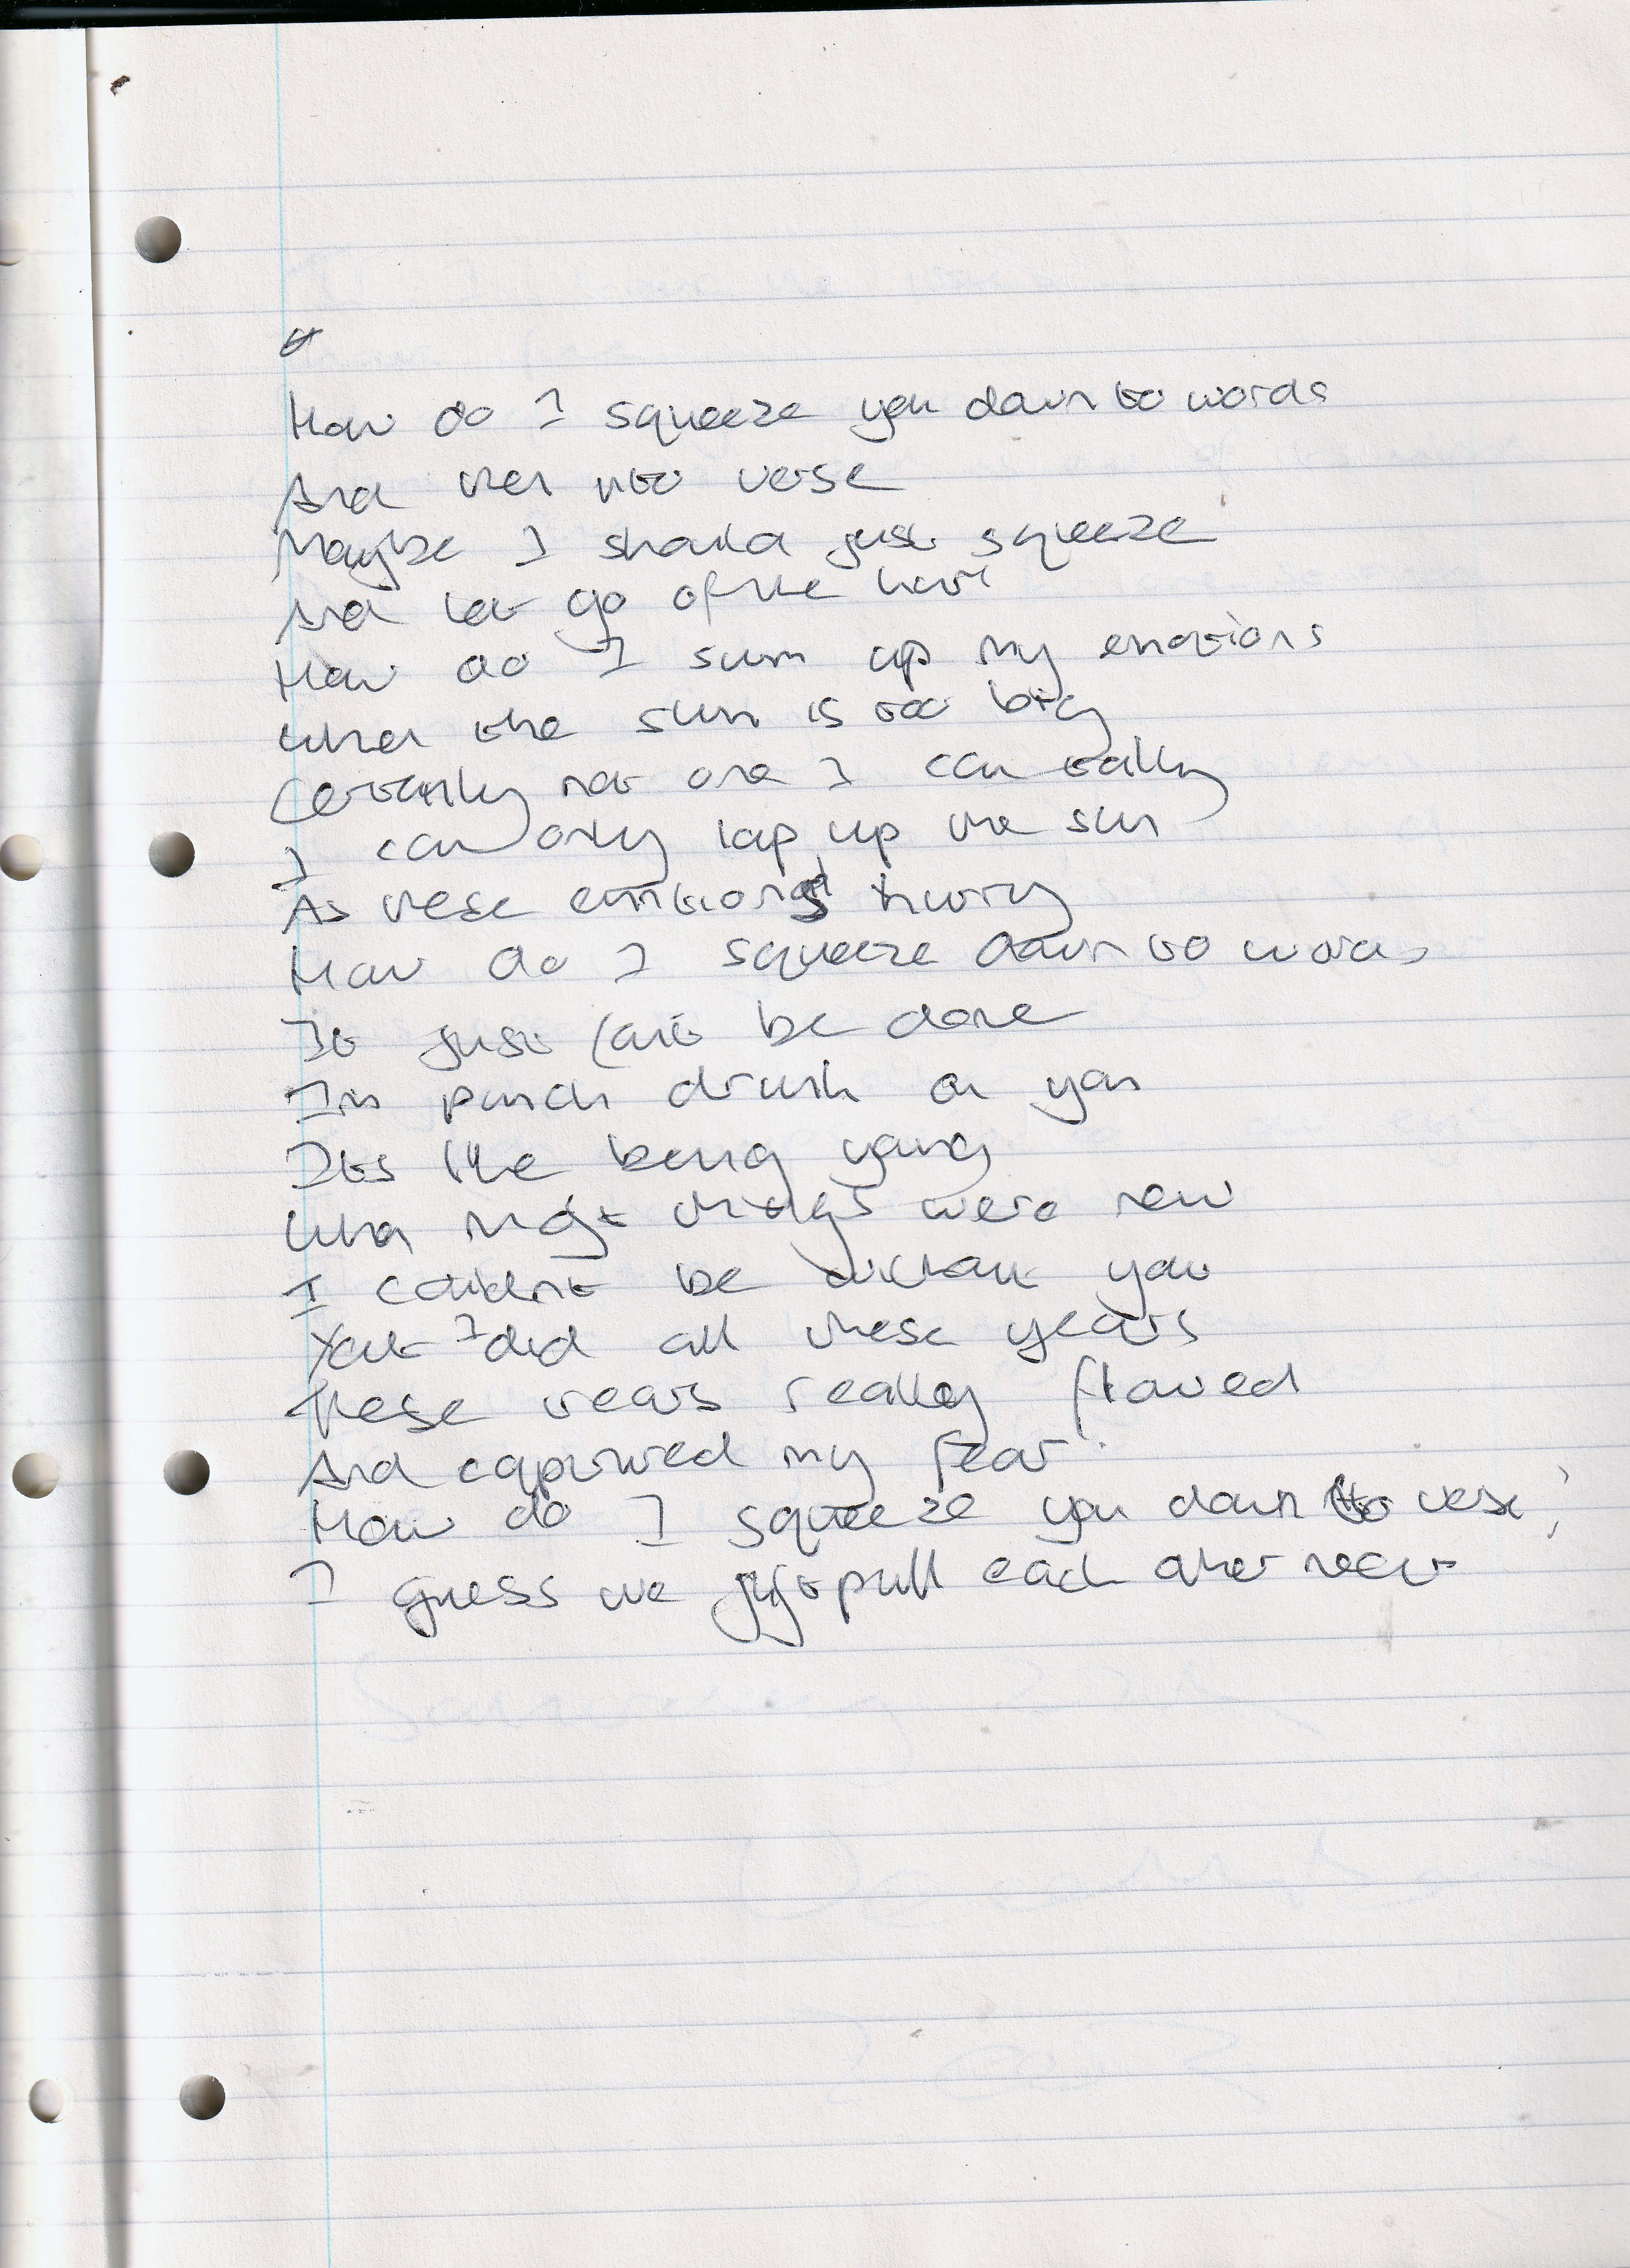 How do I squeeze you down to words
And then into verse
Maybe I should just squeeze
And let go of the hurt
How do I sum up my emotions
When the sum is too big
Certainly not one I can tally
I can only lap up the sun
As these emotions hurry
How do I squeeze down to words
It just cant be done
Im punch drunk on you
Its like being young
When most things were new
I couldnt be without you
Yet I did all these years
These years really flowed
And captured my fear
How do I squeeze you down to verse,
I guess we just pull each other near